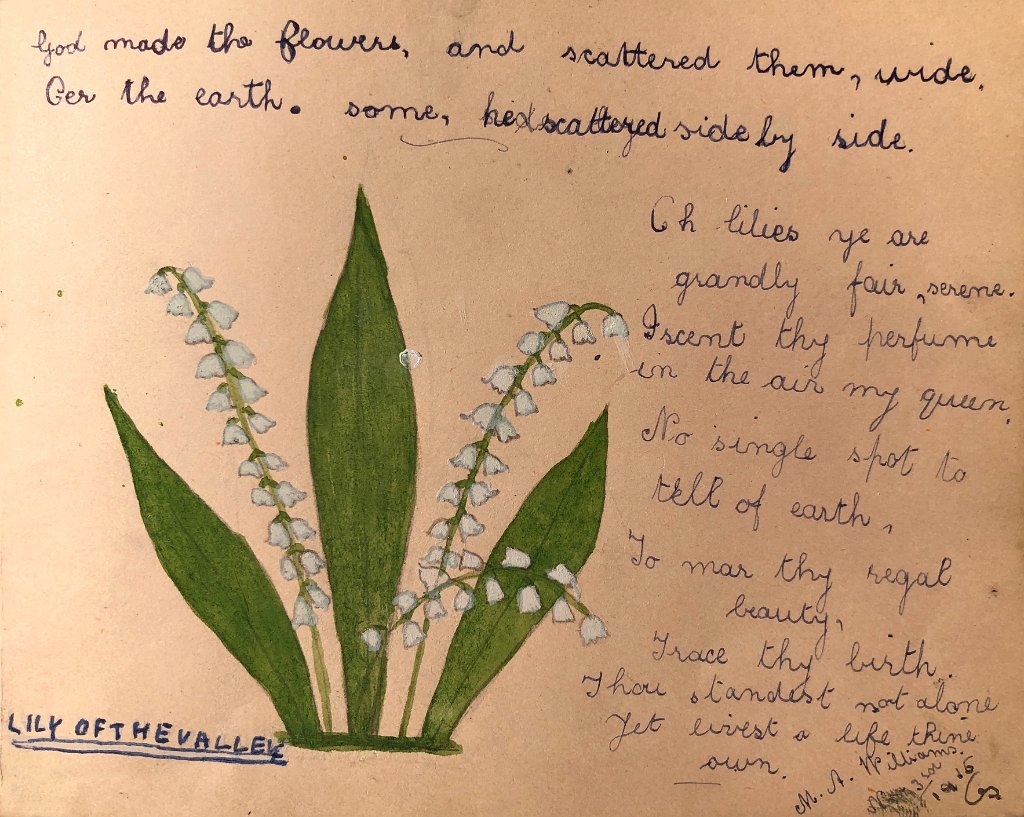 God made the flowers, and scattered them, wide.
Oer the earth. some, scattered side by side.
Oh lilies ye are
grandly fair, serene.
I scent thy perfume
in the air my queen.
No single spot to
tell of earth,
To mar thy regal
beauty,
Trace thy birth.
Thou standest not alone
Yet livest a life thine
own.
LILY OF THE VALLEY
M. A. Williams.